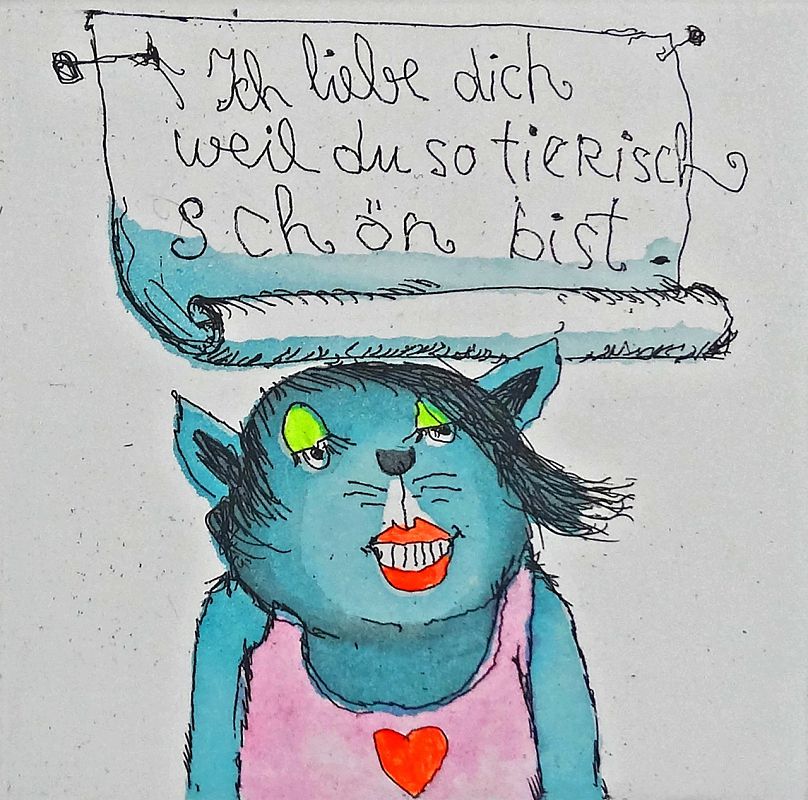 Ich liebe dich
weil du so tierisch
schön bist.